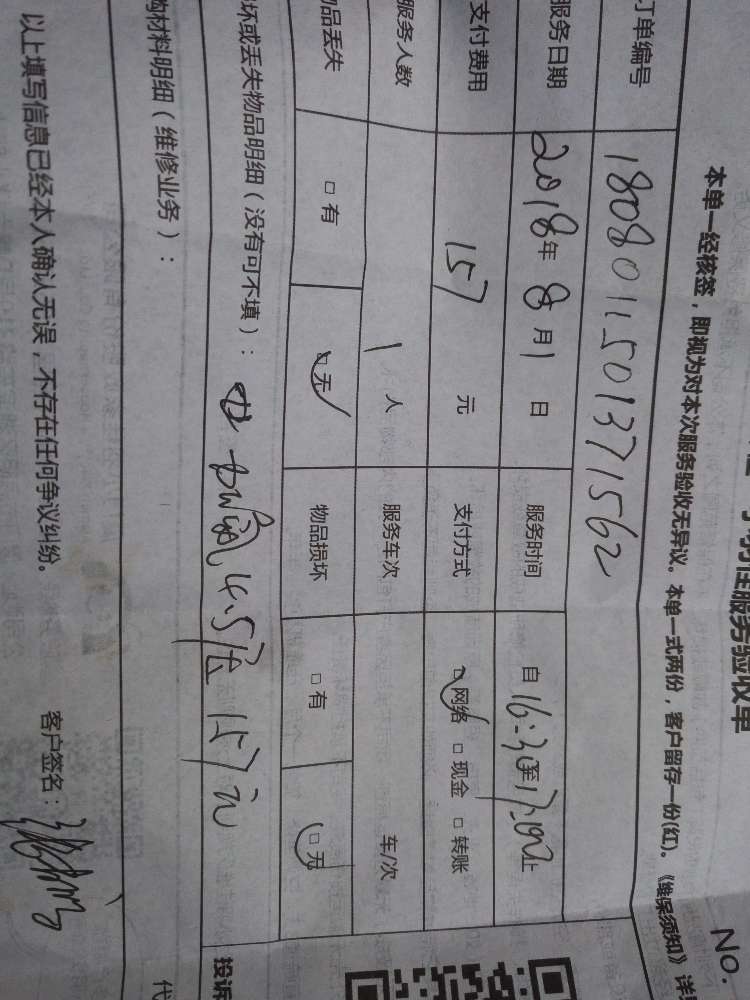 服务验收单
No.
本单一经核签，即视为对本次服务验收无异议。本单一式两份，客户留存一份(红)。《维保须知》详
订单编号 1808011501371562
服务日期 2018年8月1日 服务时间 自16:30至17:00止
支付费用 157元 支付方式 □网络 □现金 □转账
服务人数 1人 服务车次 车/次
物品丢失 □有 □无 物品损坏 □有 □无
坏或丢失物品明细（没有可不填）：
加氟4.5压 157元
购材料明细（维修业务）：
投诉
代
以上填写信息已经本人确认无误，不存在任何争议纠纷。 客户签名：